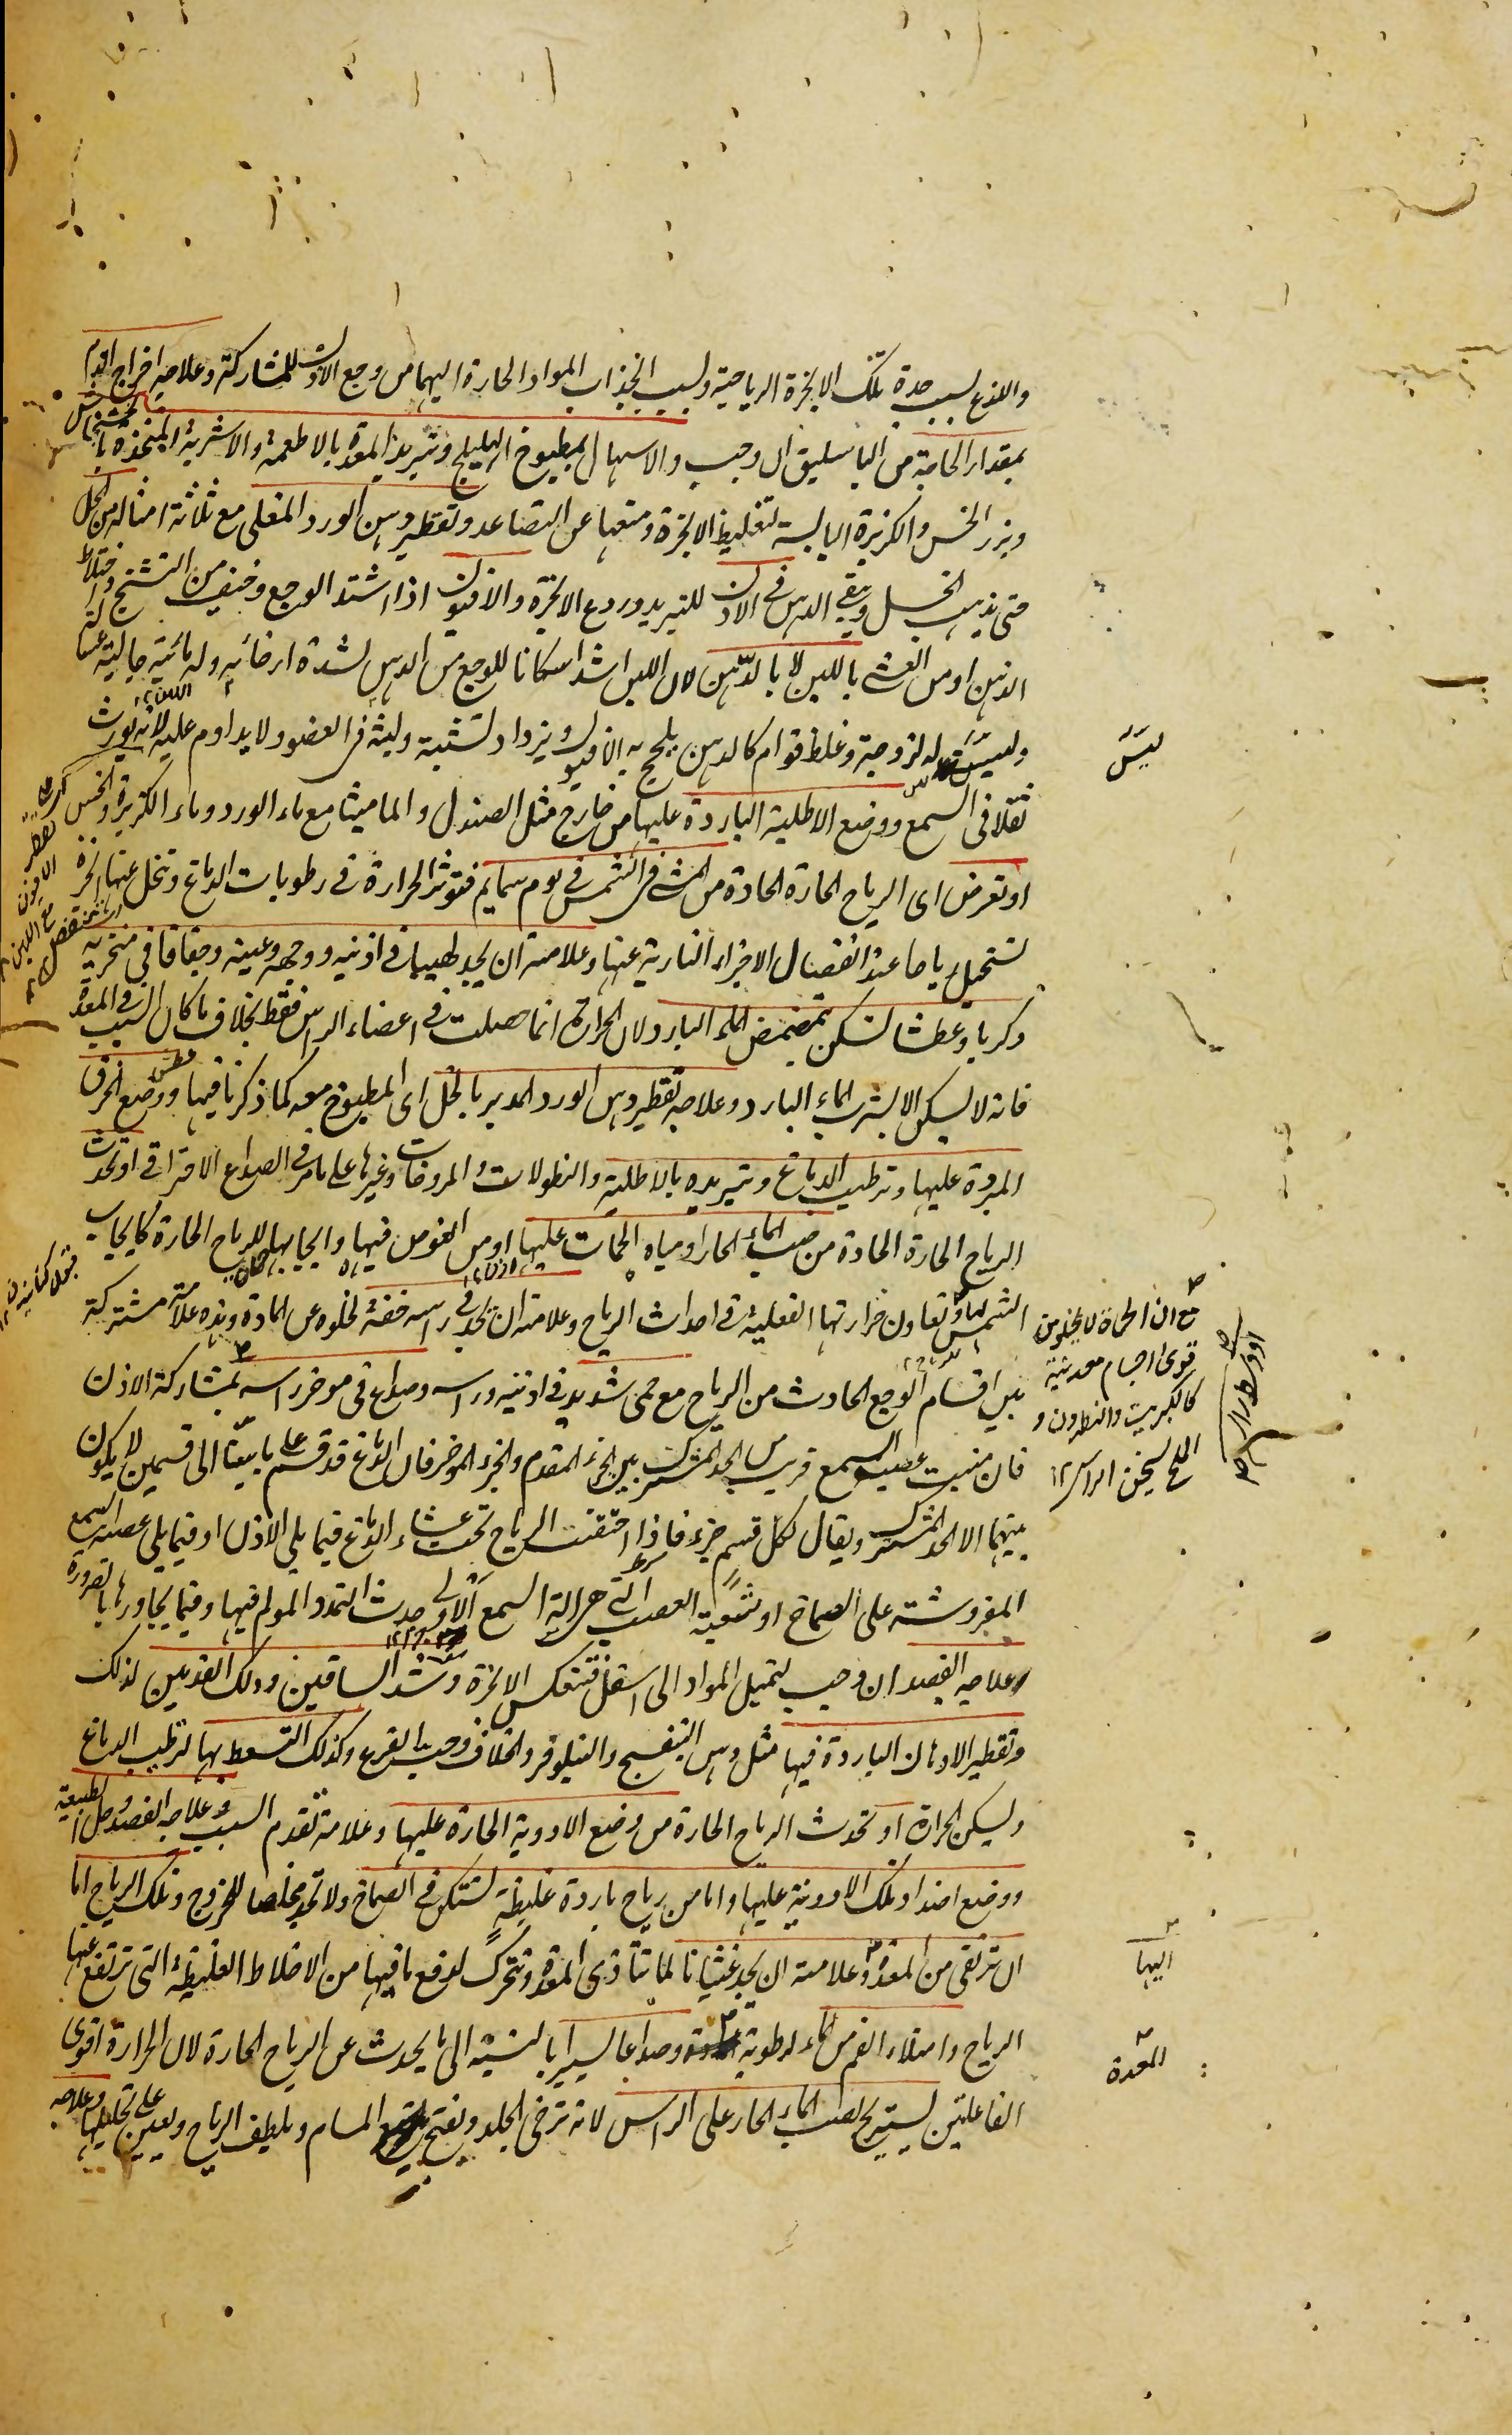 واللذع بسبب حدة تلك الابخرة الرياحية وبسبب انجذاب المواد الحارة اليهما من وجع الاذن للمشاركة وعلاجه اخراج الدم
بمقدار الحاجة من الباسليق ان وجب والاسهال بمطبوخ الهليلج وتبريد المعدة بالاطعمة والاشربة المتخذة بالخشخاش
وبزر الخس والكزبرة اليابسة لتغليظ الابخرة ومنعها عن التصاعد وتقطير دهن الورد المغلى مع ثلاثة امثاله من الخل
حتى يذهب الخل ويبقى الدهن فى الاذن للتبريد وردع الابخرة والافيون اذا اشتد الوجع وخيف من التشنج واختلاط
الذهن او من الغشى باللبن لا بالدهن لان اللبن اشد اسكانا للوجع من الدهن لشدة ارخائه وله مائية جالية
وليست له لزوجة وغلظ قوام كالدهن يلحج به الافيون ويزداد تشبثه ولبثه فى العضو ولا يداوم عليه لانه يورث
ثقلا فى السمع ووضع الاطلية الباردة عليها من خارج مثل الصندل والماميثا مع ماء الورد وماء الكزبرة والخس
او تعرض اى الرياح الحارة الحادة من المشى فى الشمس فى يوم سمايم فتوثر الحرارة فى رطوبات الدماغ وتحلل عنها ابخرة
تستحيل رياحا عند انفصال الاجزاء النارية عنها وعلامته ان يجد لهيبا فى اذنيه ووجهه وعينه وجفافا فى منخريه
وكربا وعطشا يسكن بتمضمض الماء البارد لان الحرارة انما حصلت فى اعضاء الراس فقط بخلاف ما كان السبب فى المعدة
فانه لا يسكن الا بشرب الماء البارد وعلاجه تقطير دهن الورد المدبر بالخل اى المطبوخ معه كما ذكرنا فيها ووضع الخرق
المبردة عليها وترطيب الدماغ وتبريده بالاطلية والنطولات والمروخات وغيرها على ما مر فى الصداع الاحتراقى او تحدث
الرياح الحارة الحادة من صب الماء الحار او مياه الحمات عليها او من الغوص فيها وايجابها للرياح الحارة كايجاب
الشمس وتعاون حرارتها الفعلية فى احداث الرياح وعلامته ان يجد فى راسه خفة لخلوه عن المادة وهذه علامة مشتركة
بين اقسام الوجع الحادث من الرياح مع حمى شديد فى اذنيه وراسه وصداع فى موخر راسه بمشاركة الاذن
فان منبت عصب السمع قريب من الحد المشترك بين الجزء المقدم والجزء الموخر فان الدماغ قد قسم على ما بينا الى قسمين لا يكون
بينهما الا الحد المشترك ويقال لكل قسم جزء فاذا احتقنت الرياح تحت غشاء الدماغ فيما يلى الاذن او فيما يلى عصب السمع
المفروشة على الصماخ او شعبة العصب التى هى الة السمع الاولى حدث التمدد المولم فيها وفيما يجاورها بالضرورة
وعلاجه الفصد ان وجب لتميل المواد الى اسفل فتنعكس الابخرة وشد الساقين ودلك القدمين لذلك
وتقطير الادهان الباردة فيها مثل دهن البنفسج والنيلوفر والخلاف وحب القرع وكذلك التسعط بها لترطيب الدماغ
وليسكن الحرارة او تحدث الرياح الحارة من وضع الادوية الحارة عليها وعلامته تقدم السبب وعلاجه الفصد وحل الطبيعة
ووضع اضداد تلك الادوية عليها واما من رياح باردة غليظة تستكن فى الصماخ ولا تجد مخلصا للخروج وتلك الرياح اما
ان ترتقى من المعدة وعلامته ان يجد غثيانا لما تتاذى المعدة وتتحرك لدفع ما فيها من الاخلاط الغليظة التى ترتفع عنها
الرياح وامتلاء الفم من الماء لرطوبة وصداعا يسيرا بالنسبة الى ما يحدث عن الرياح الحارة لان الحرارة اقوى
الفاعلتين يستريح لصب الماء الحار على الراس لانه يرخى الجلد ويفتح المسام ويلطف الرياح ويعين على تحليلها وعلاجه
ليس
مع ان الحماة لا يخلو من
قوى اجسام معدنية
كالكبريت والنطرون و
الملح يسخن الراس ١٢
اليها
المعدة